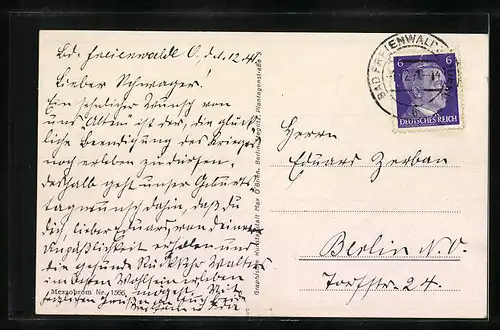 Bd. Freienwalde O, d. 1. 12. 41.
Lieber Schwager!
Ein sehnlicher Wunsch von
uns "Alten" ist der, die glück-
liche Beendigung des Krieges
noch erleben zu dürfen.
Deshalb geht unser Geburts-
tagswunsch dahin, daß Du
Dich, lieber Eduard, von Deiner
Unpäßlichkeit erholen und
die gesunde Rückkehr Walters
im besten Wohlsein erleben
mögest. Mit
herzlichen Grüßen
Mezzochrom Nr. 1566
Graphische Kunstanstalt Max O'Brien, Berlin-Steglitz, Plantagenstraße
BAD FREIENWALDE
6 6
DEUTSCHES REICH
Herrn
Eduard Zerban
Berlin N.O.
Torfstr. 24.